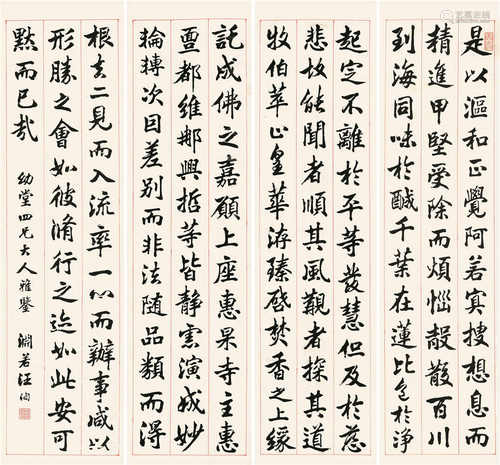 是以漚和正覺阿若冥搜想息而
精進甲堅受除而煩惱殼散百川
到海同味於鹹千葉在蓮比色於淨
起定不離於平等發慧但及於慈
悲故能聞者順其風觀者探其道
牧伯萃止皇華洊臻啓焚香之上緣
託成佛之嘉願上座惠杲寺主惠
亶都維那興哲等皆靜慮演成妙
輪轉次因差別而非法隨品類而得
根去二見而入流率一心而辦事咸以
形勝之會如彼脩行之迹如此安可
默而已哉
幼堂四兄大人雅鑒 淵若汪洵